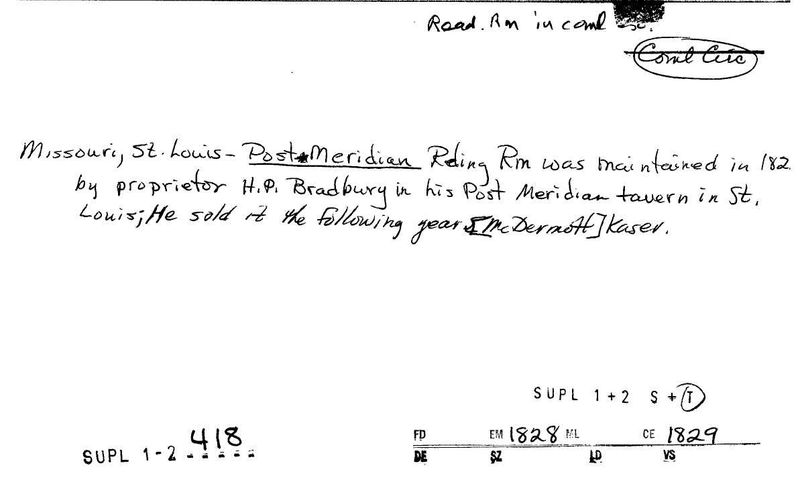 Read. Rm in coml
Coml Circ
Missouri, St. Louis - Post Meridian Rding Rm was maintained in 182
by proprietor H.P. Bradbury in his Post Meridian tavern in St.
Louis; He sold it the following year [McDermott] Kaser.
SUPL 1 + 2 S + T
SUPL 1-2 418
FD EM 1828 ML CE 1829
DE SZ LD VS